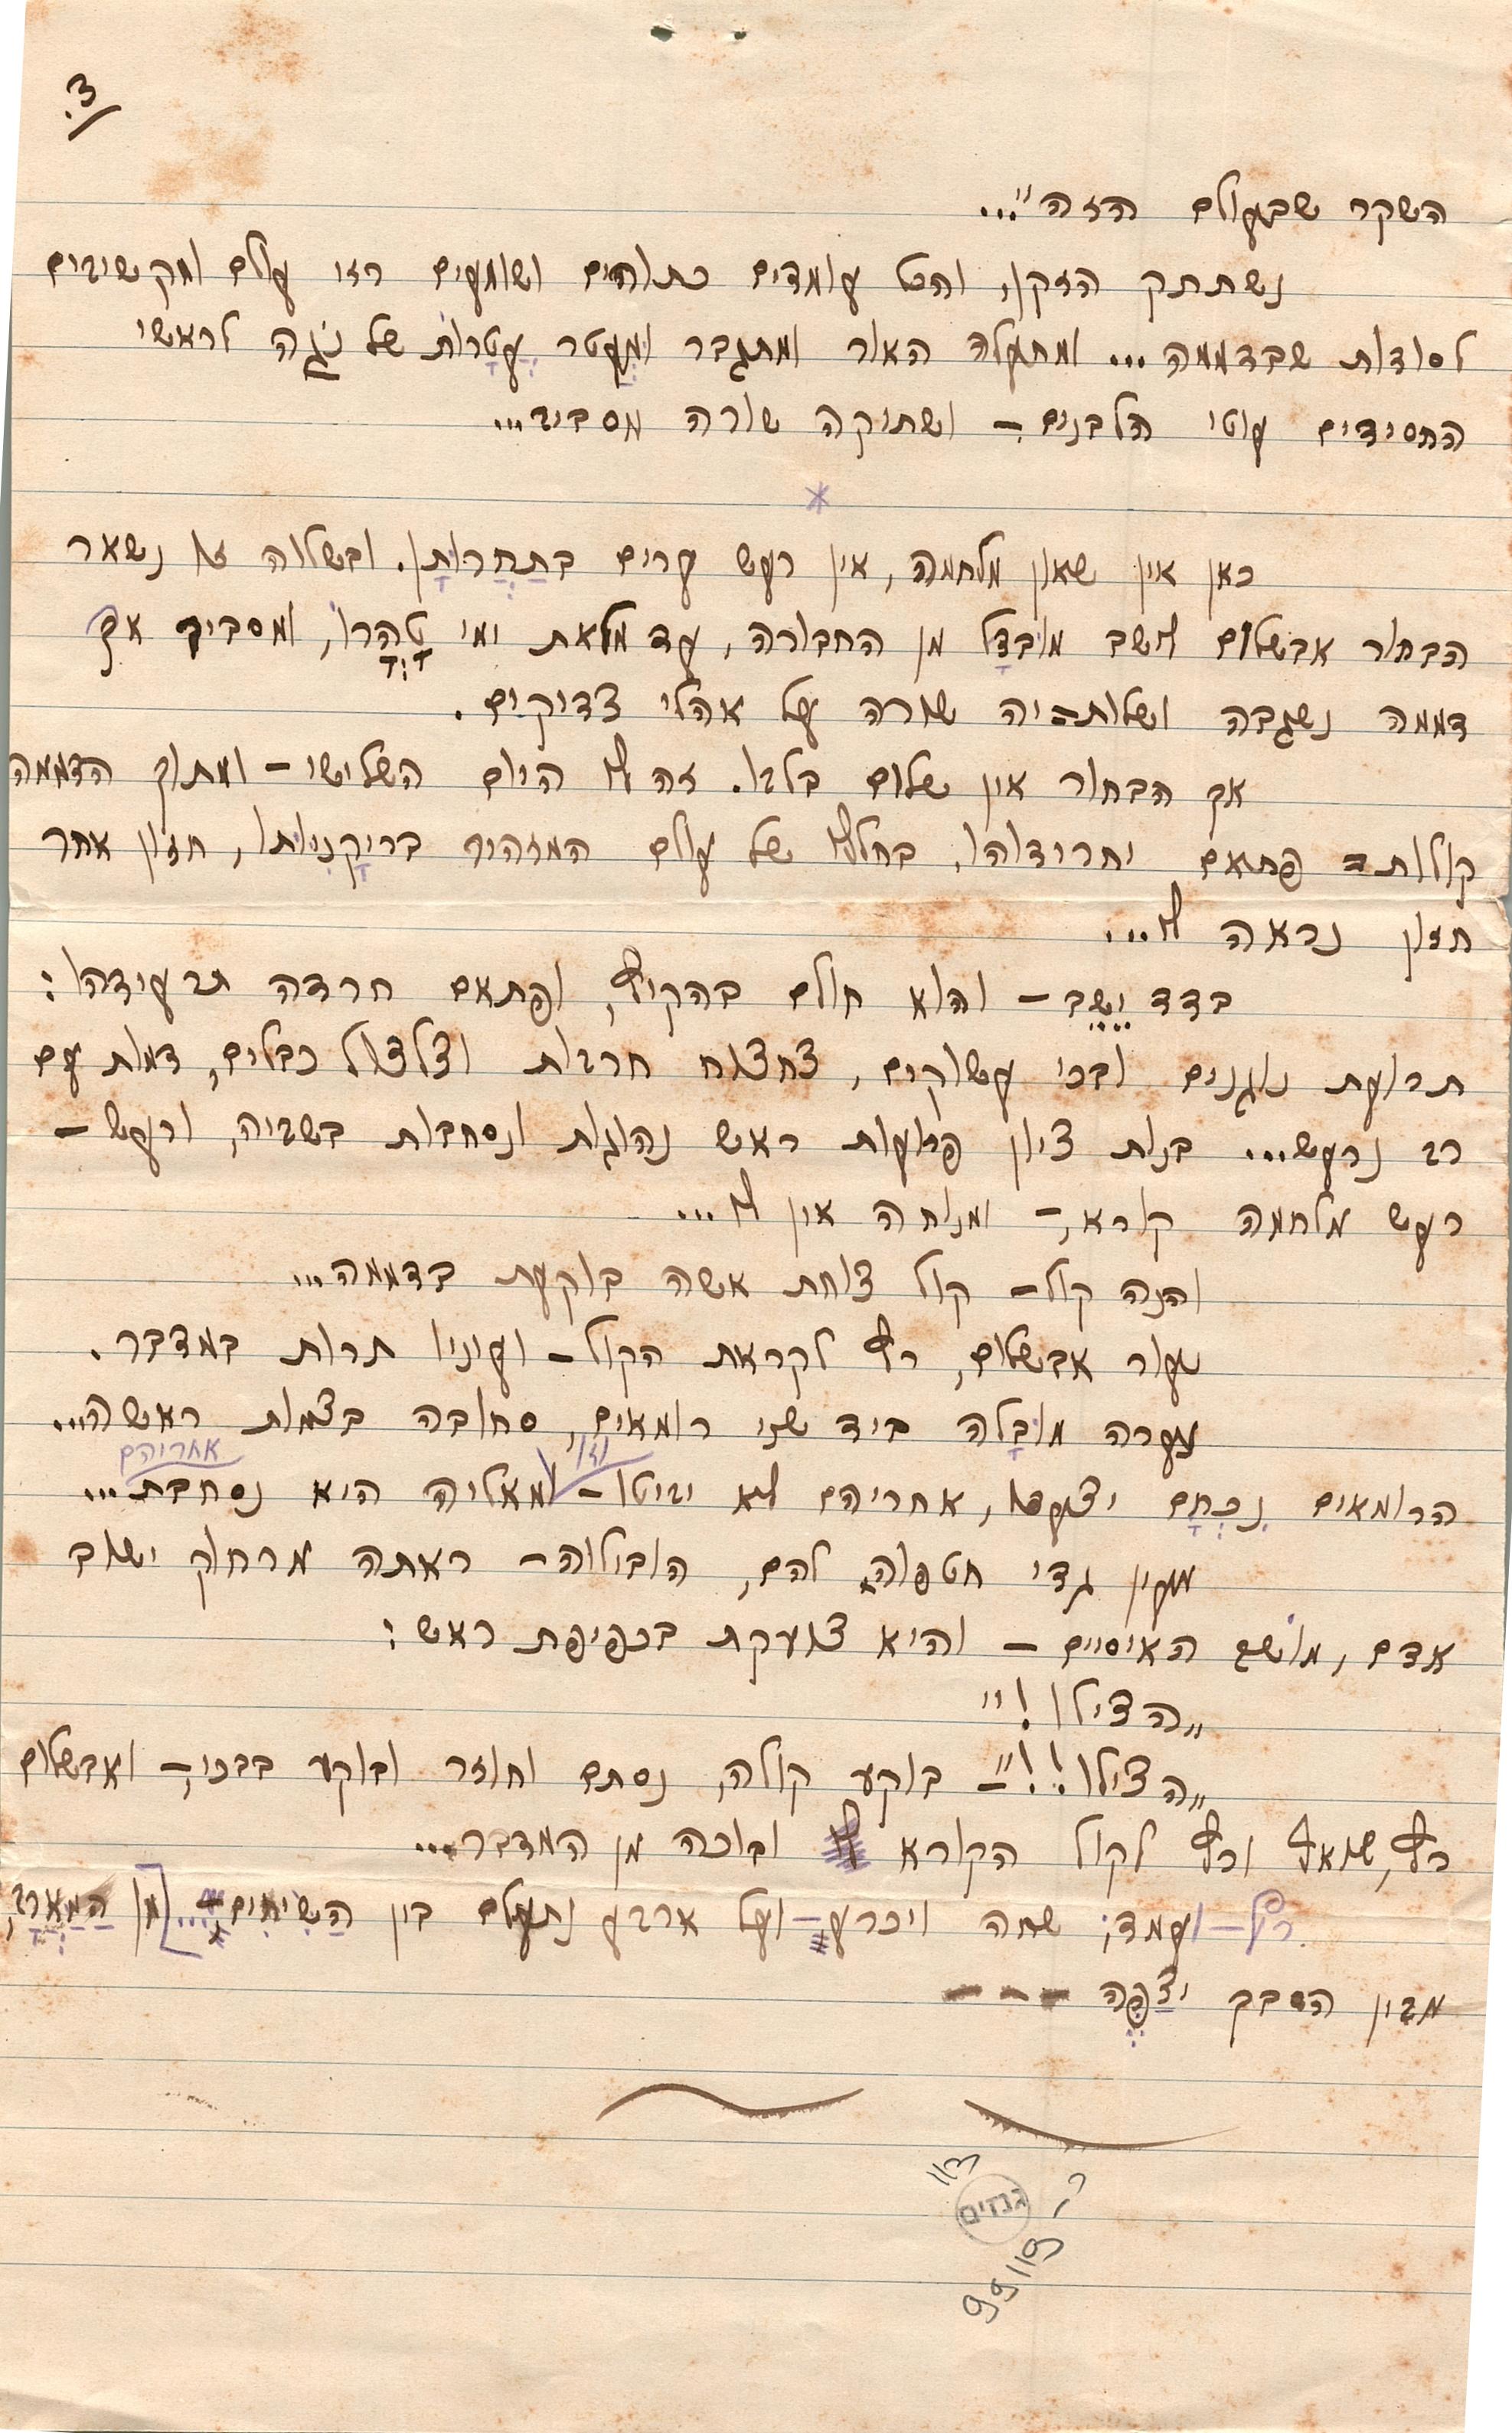 3.
השקר שבעולם הזה"...
נשתתק הזקן, והם עומדים כתוהים ושומעים רזי עולם ומקשיבים
לסודות שבדממה... ומתעלה האור ומתגבר וּמְעַטר עֲטָרוֹת של נֹגַה לראשי
החסידים עוטי הלבנים – ושתיקה שורה מסביב...
*
כאן אין שאון מלחמה, אין רעש ערים בתַחֲרוּתָן. ובשלוה זו נשאר
הבחור אבשלום יושב מובדָל מן החבורה, עד מלאת ימי טָהֳרוֹ, ומסביב אך
דממה נשגבה ושלות=יה שורה על אהלי צדיקים.
אך הבחור אין שלום בלבו. זה לו היום השלישי – ומתוך הדממה
קולות= פתאם יחרידוהו, בחלל של עולם המזהיר בריקָנִיּוּתו, חזון אחר
חזון נראה לו...
בדד יֵשֵׁב – והוא חולם בהקיץ, ופתאם חרדה תרעידהו:
תרועת נוגנים ובכי עשוקים, צחצוח חרבות וצלצול כבלים, דמות עם
רב נרעש... בנות ציון פרועות ראש נהוגות ונסחבות בשביה, ורעש –
רעש מלחמה קורא, – ומנוחה אין לו...
והנה קול – קול צוחת אשה בוקעת בדממה...
יעור אבשלום, רץ לקראת הקול – ועיניו תרות במדבר.
נערה מוּבָלה ביד שני רומאים, סחובה בצמות ראשה...
הרומאים נִכְחָם יצעדו, אחריהם לא יביטו – וזו ומאליה היא נסחבת אחריהם...
מעין גדי חטפוה להם, הובילוה – ראתה מרחוק ישוב
אדם, מוֹשב האיסיים – והיא צועקת בכפיפת ראש:
„הצילו!"
„הצילו!!" – בוקע קולה, נסתם וחוזר ובוקע בבכי, – ואבשלום
רץ, שואף ורץ לקול הקורא ובוכה מן המדבר...
רץ – ועמד; שחה ויכרע, – ועל ארבע נתעלם בין הַשִּׂיחִים... [מן הַמַּאֲרָב,
מבין הסבך יצַפֶּה – – –
113
גנזים
99119